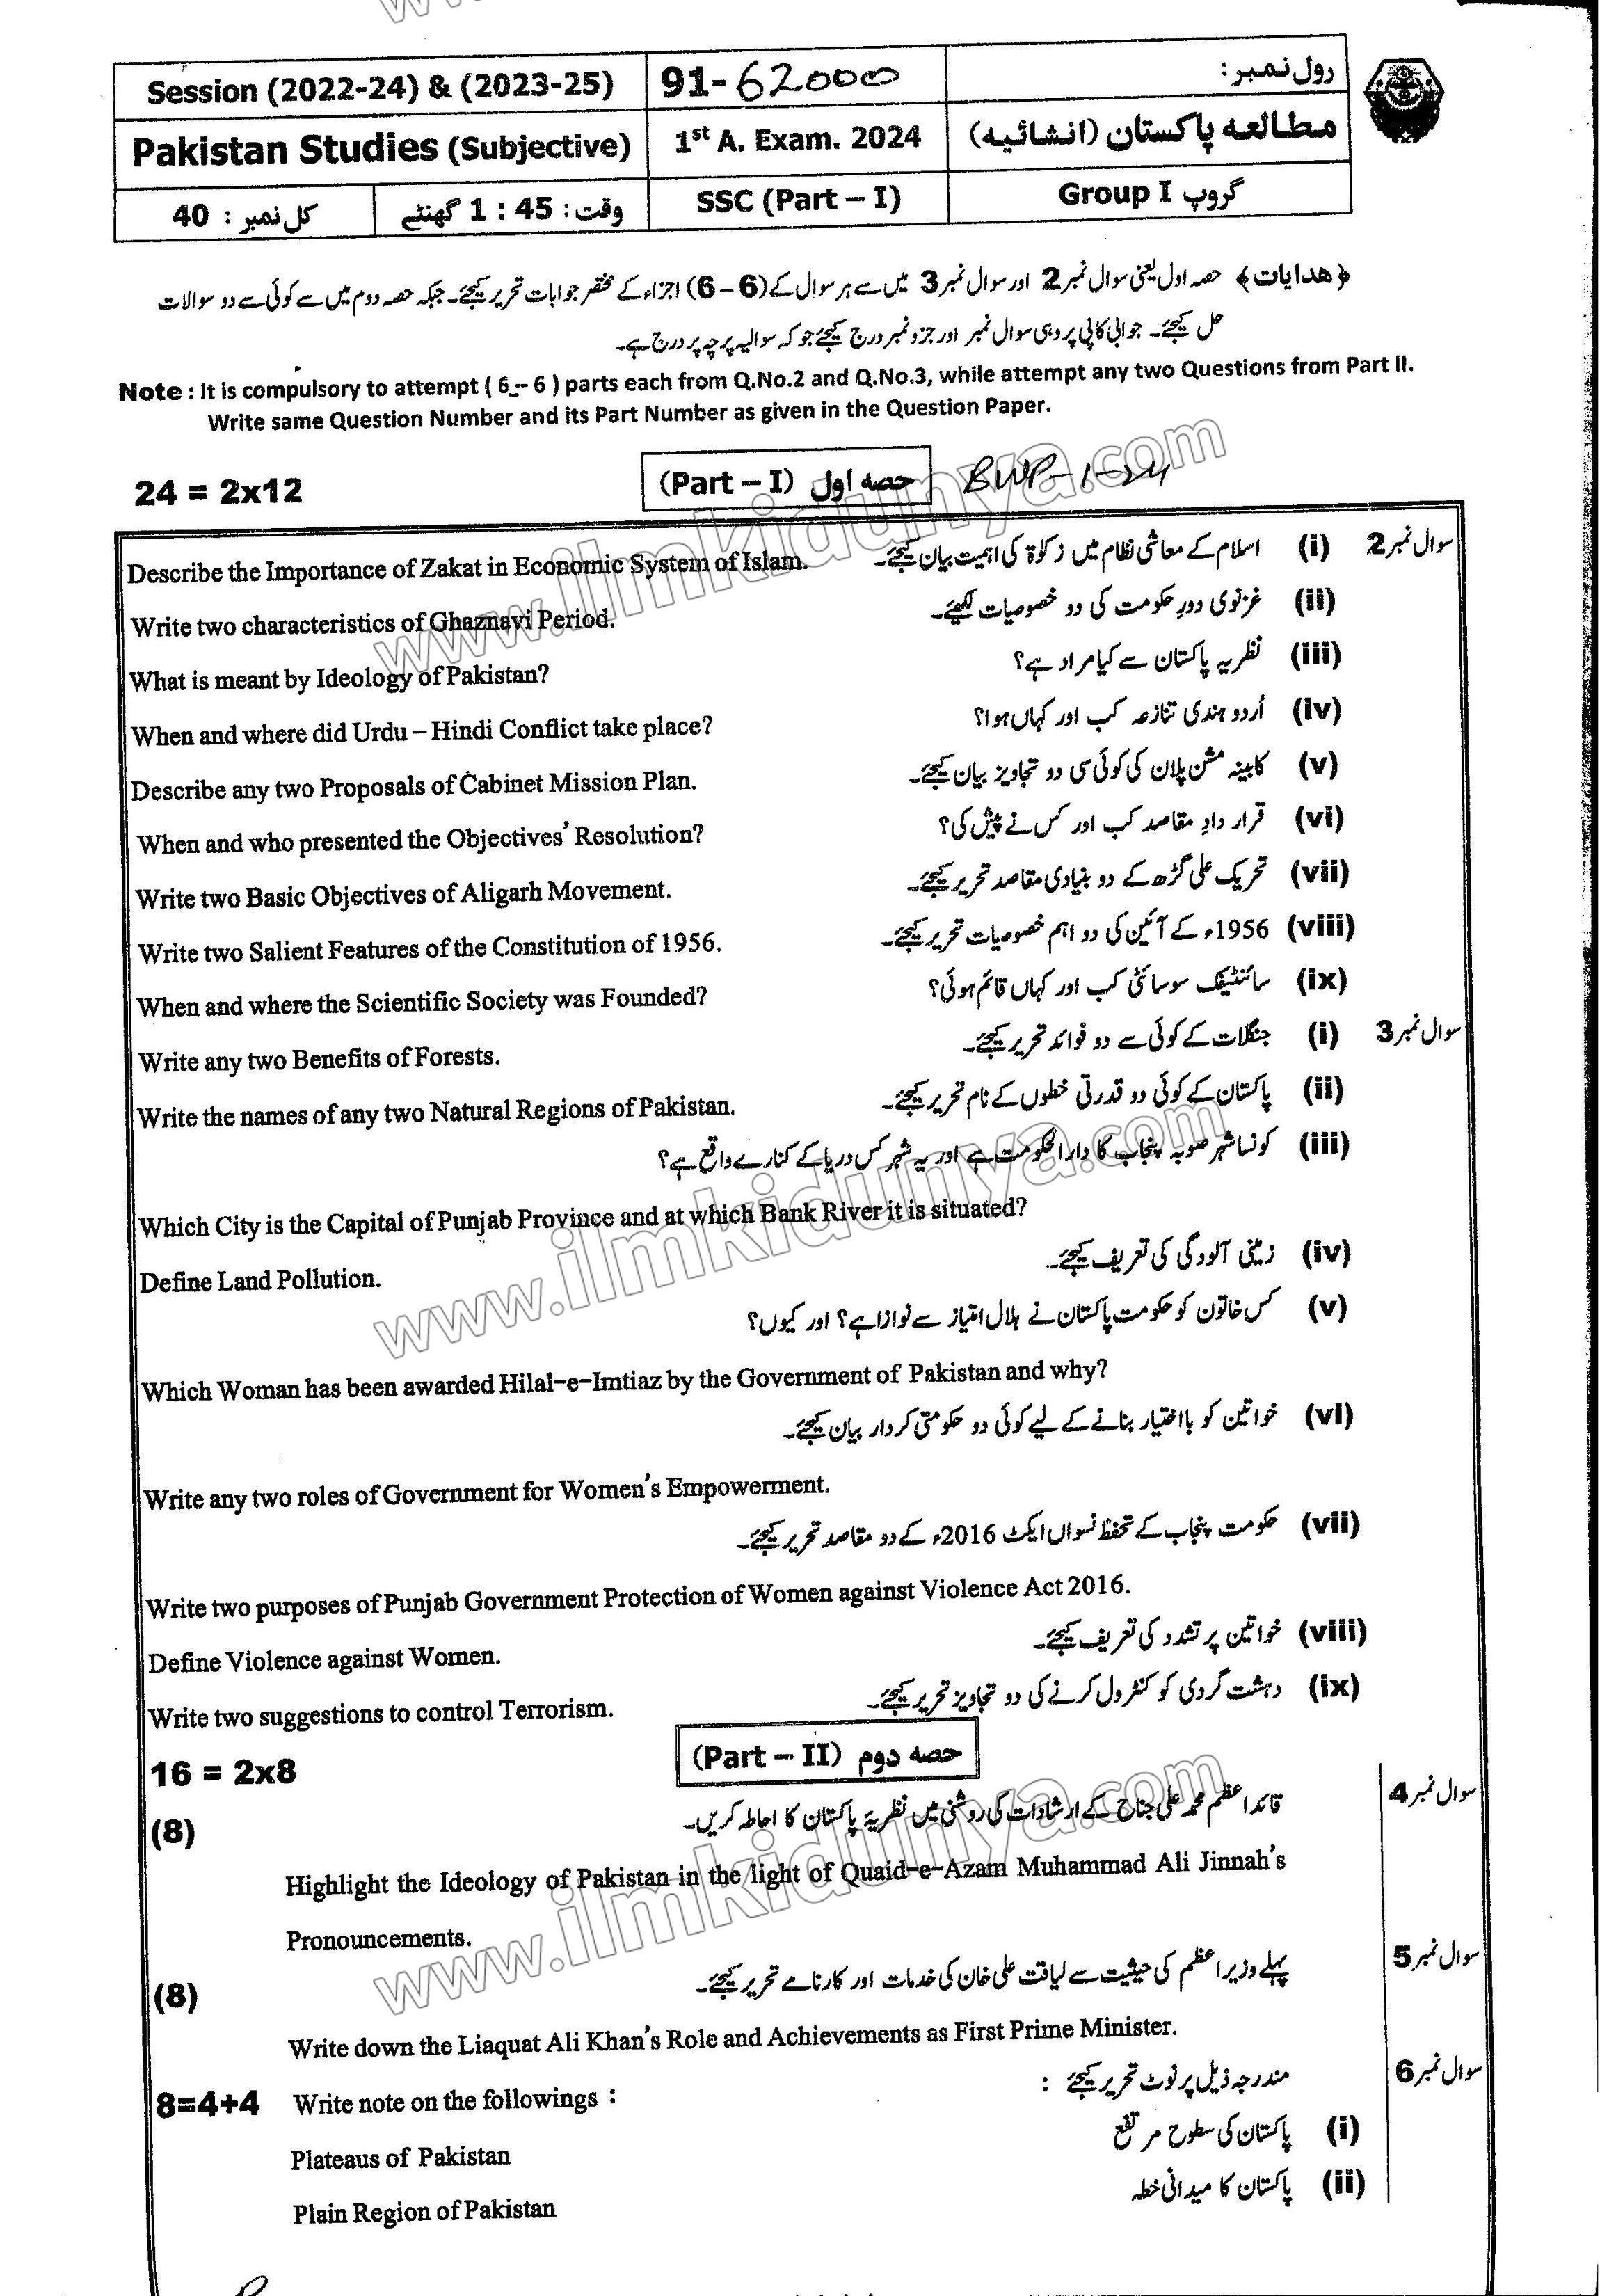 Session (2022-24) & (2023-25) 91-62000 رول نمبر:
Pakistan Studies (Subjective) 1st A. Exam. 2024 مطالعہ پاکستان (انشائیہ)
کل نمبر : 40 وقت: 45 : 1 گھنٹے SSC (Part – I) Group I گروپ
﴿ھدایات﴾ حصہ اول یعنی سوال نمبر 2 اور سوال نمبر 3 میں سے ہر سوال کے (6 – 6) اجزاء کے مختصر جوابات تحریر کیجئے۔ جبکہ حصہ دوم میں سے کوئی سے دو سوالات
حل کیجئے۔ جوابی کاپی پر وہی سوال نمبر اور جزو نمبر درج کیجئے جو کہ سوالیہ پرچہ پر درج ہے۔
Note : It is compulsory to attempt ( 6 – 6 ) parts each from Q.No.2 and Q.No.3, while attempt any two Questions from Part II.
Write same Question Number and its Part Number as given in the Question Paper.
24 = 2x12 (Part – I) حصہ اول BWP-1-24
سوال نمبر 2 (i) اسلام کے معاشی نظام میں زکوٰۃ کی اہمیت بیان کیجئے۔
Describe the Importance of Zakat in Economic System of Islam.
(ii) غزنوی دورِ حکومت کی دو خصوصیات لکھیے۔
Write two characteristics of Ghaznavi Period.
(iii) نظریہ پاکستان سے کیا مراد ہے؟
What is meant by Ideology of Pakistan?
(iv) اُردو ہندی تنازعہ کب اور کہاں ہوا؟
When and where did Urdu – Hindi Conflict take place?
(v) کابینہ مشن پلان کی کوئی سی دو تجاویز بیان کیجئے۔
Describe any two Proposals of Cabinet Mission Plan.
(vi) قرار دادِ مقاصد کب اور کس نے پیش کی؟
When and who presented the Objectives' Resolution?
(vii) تحریک علی گڑھ کے دو بنیادی مقاصد تحریر کیجئے۔
Write two Basic Objectives of Aligarh Movement.
(viii) 1956ء کے آئین کی دو اہم خصوصیات تحریر کیجئے۔
Write two Salient Features of the Constitution of 1956.
(ix) سائنٹیفک سوسائٹی کب اور کہاں قائم ہوئی؟
When and where the Scientific Society was Founded?
سوال نمبر 3 (i) جنگلات کے کوئی سے دو فوائد تحریر کیجئے۔
Write any two Benefits of Forests.
(ii) پاکستان کے کوئی دو قدرتی خطوں کے نام تحریر کیجئے۔
Write the names of any two Natural Regions of Pakistan.
(iii) کونسا شہر صوبہ پنجاب کا دارالحکومت ہے اور یہ شہر کس دریا کے کنارے واقع ہے؟
Which City is the Capital of Punjab Province and at which Bank River it is situated?
(iv) زمینی آلودگی کی تعریف کیجئے۔
Define Land Pollution.
(v) کس خاتون کو حکومت پاکستان نے ہلال امتیاز سے نوازا ہے؟ اور کیوں؟
Which Woman has been awarded Hilal-e-Imtiaz by the Government of Pakistan and why?
(vi) خواتین کو بااختیار بنانے کے لیے کوئی دو حکومتی کردار بیان کیجئے۔
Write any two roles of Government for Women's Empowerment.
(vii) حکومت پنجاب کے تحفظ نسواں ایکٹ 2016ء کے دو مقاصد تحریر کیجئے۔
Write two purposes of Punjab Government Protection of Women against Violence Act 2016.
(viii) خواتین پر تشدد کی تعریف کیجئے۔
Define Violence against Women.
(ix) دہشت گردی کو کنٹرول کرنے کی دو تجاویز تحریر کیجئے۔
Write two suggestions to control Terrorism.
16 = 2x8 (Part – II) حصہ دوم
سوال نمبر 4 قائداعظم محمد علی جناح کے ارشادات کی روشنی میں نظریۂ پاکستان کا احاطہ کریں۔ (8)
Highlight the Ideology of Pakistan in the light of Quaid-e-Azam Muhammad Ali Jinnah's
Pronouncements.
سوال نمبر 5 پہلے وزیراعظم کی حیثیت سے لیاقت علی خان کی خدمات اور کارنامے تحریر کیجئے۔ (8)
Write down the Liaquat Ali Khan's Role and Achievements as First Prime Minister.
سوال نمبر 6 مندرجہ ذیل پر نوٹ تحریر کیجئے :
8=4+4 Write note on the followings :
(i) پاکستان کی سطوح مرتفع
Plateaus of Pakistan
(ii) پاکستان کا میدانی خطہ
Plain Region of Pakistan
www.ilmkidunya.com
www.ilmkidunya.com
www.ilmkidunya.com